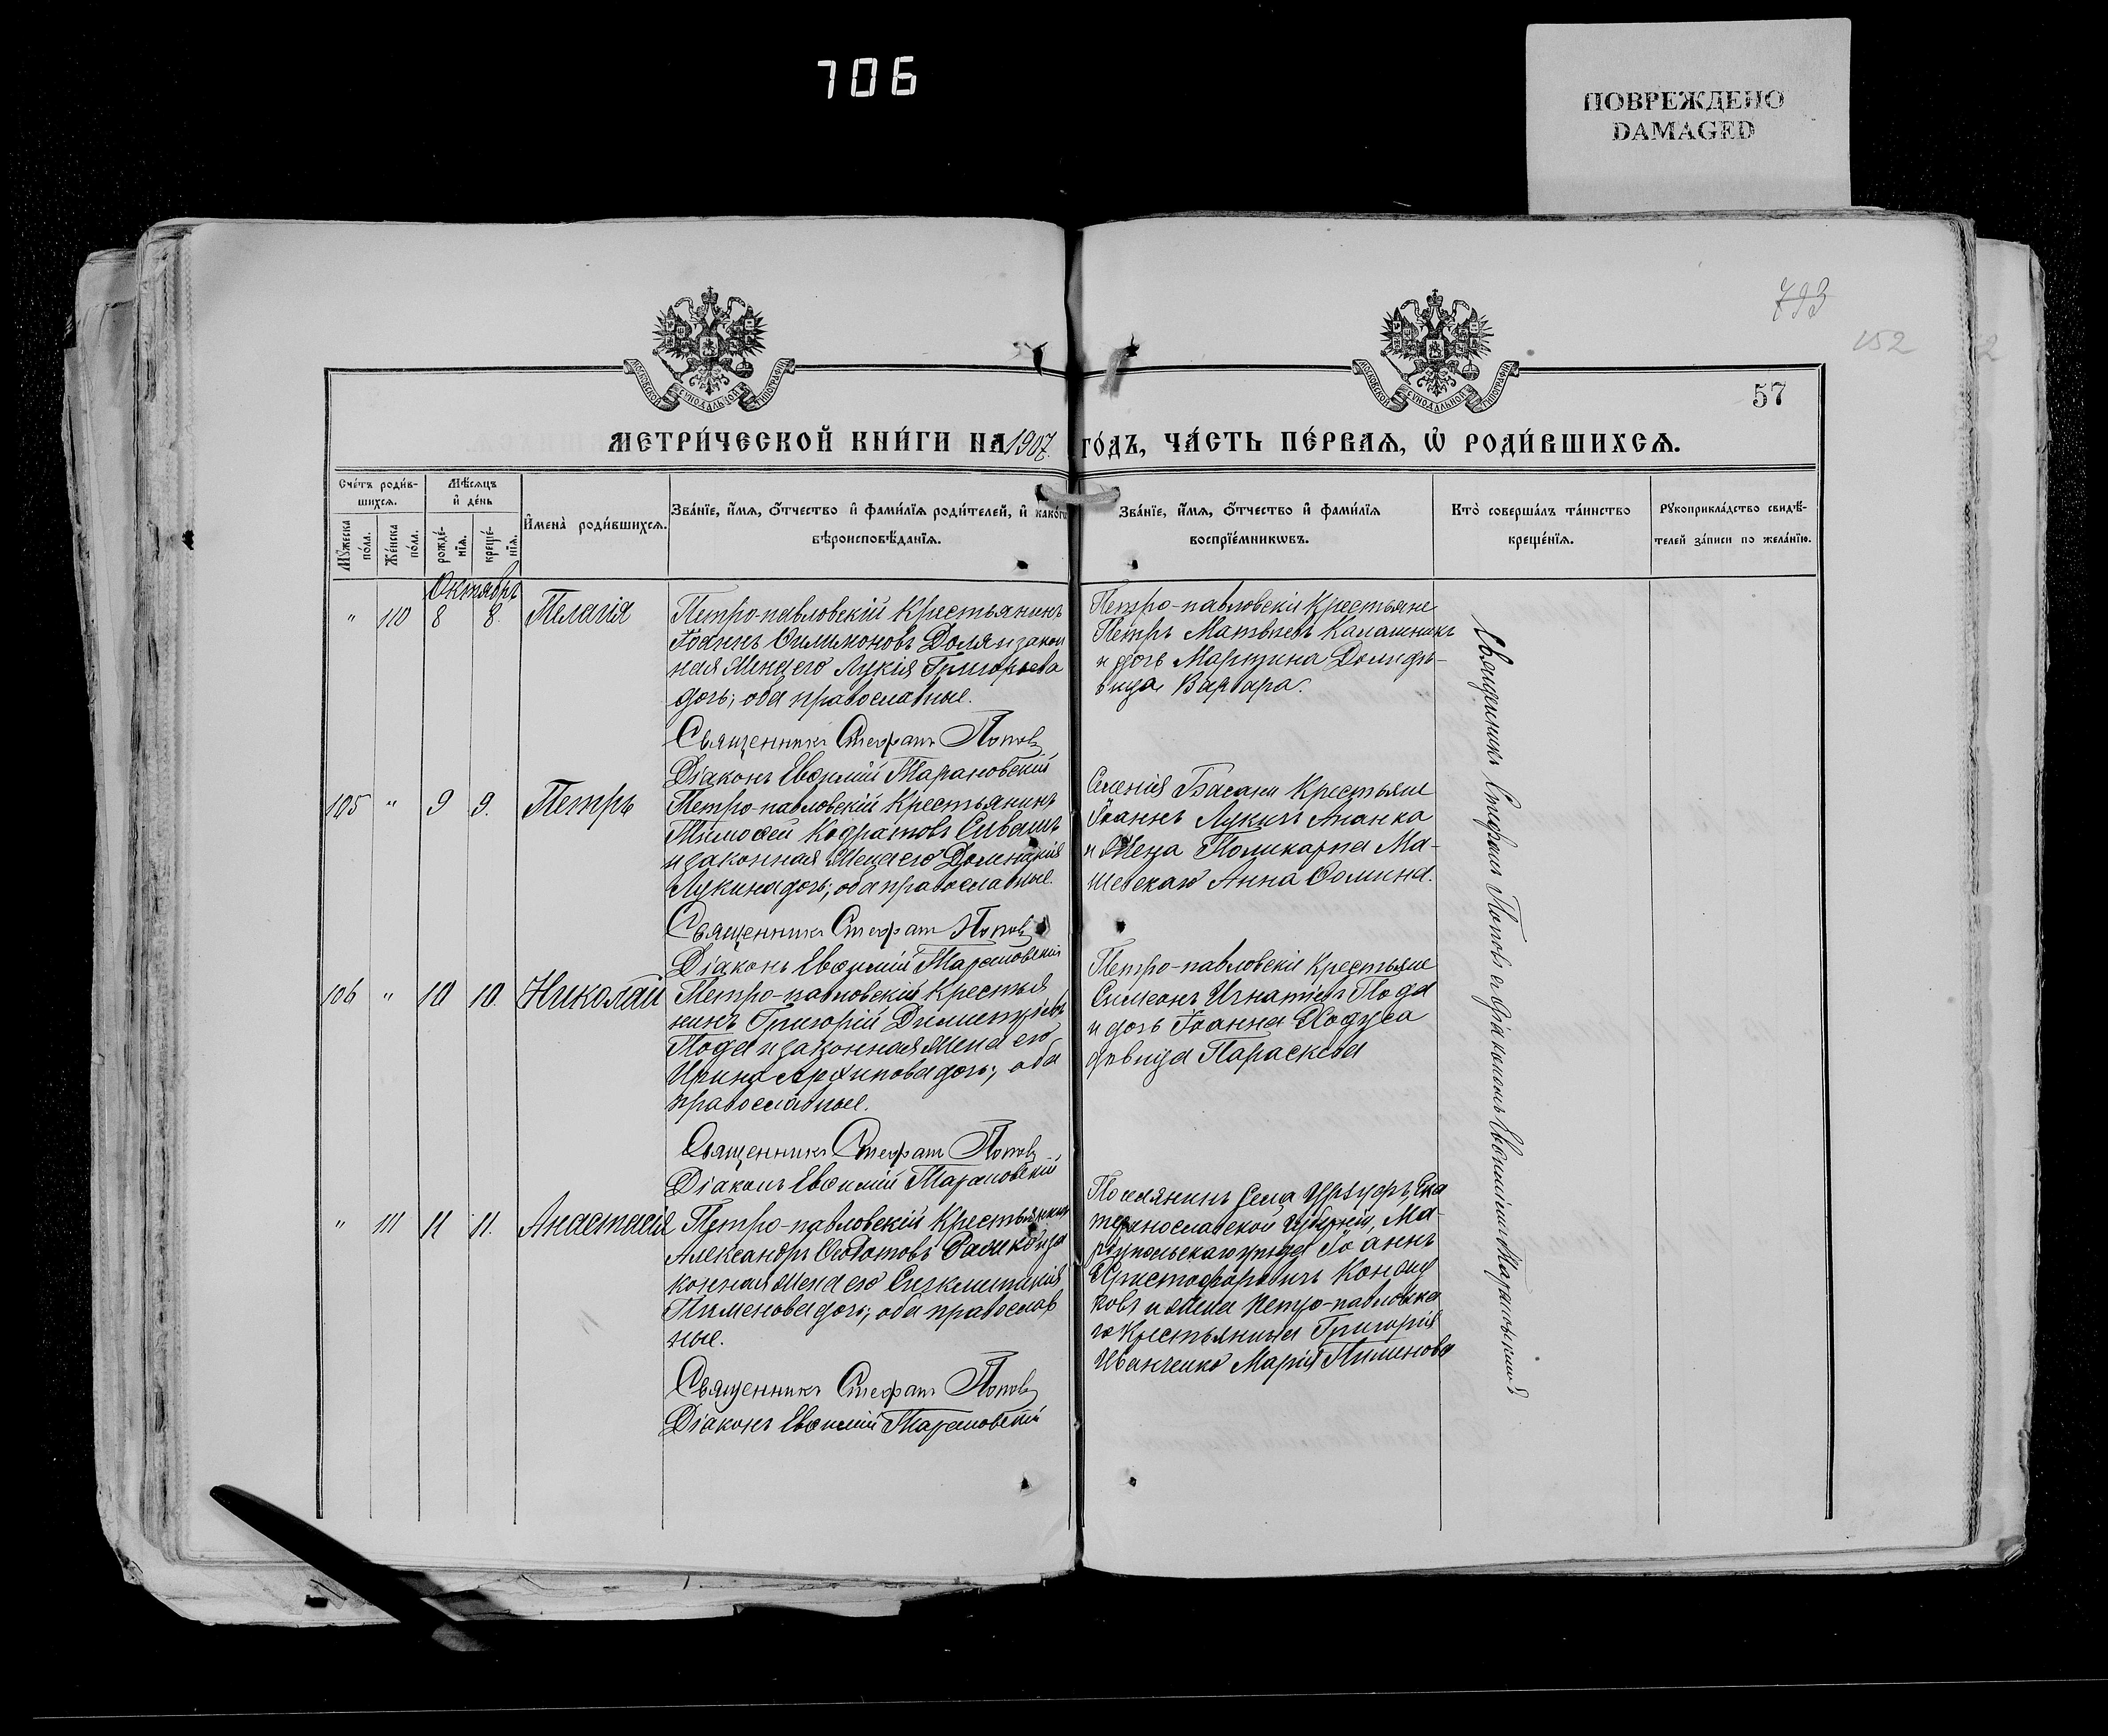 706
ПОВРЕЖДЕНО
DAMAGED
793
152
57
МЕТРИ́ЧЕСКОЙ КНИ́ГИ НА 1907 ГО́ДЪ, ЧА́СТЬ ПЕ́РВАѦ, Ѡ҆ РОДИ́ВШИХСѦ.
Сче́тъ роди́в-
шихсѧ.
Мꙋ́жеска по́ла.
Же́нска по́ла.
Мѣ́сѧцъ
и҆ де́нь
рожде́-
нїѧ.
креще́-
нїѧ.
И҆мена̀ роди́вшихсѧ.
Зва́нїе, и҆́мѧ, ѻ҆́тчество и҆ фами́лїѧ роди́телей, и҆ како́гѡ
вѣроисповѣ́данїѧ.
Зва́нїе, и҆́мѧ, ѻ҆́тчество и҆ фами́лїѧ
воспрїе́мникѡвъ.
Кто̀ соверша́лъ та́инство
креще́нїѧ.
Рꙋкоприкла́дство свидѣ́-
телей за́писи по жела́нїю.
Октябрь
" 110 8 8. Пелагія
Петро-павловскій Крестьянинъ
Іоаннъ Филимоновъ Доля и закон
ная жена его Лукія Григорьева
дочь; оба православные.
Священникъ Стефанъ Поповъ
Діаконъ Евѳимій Тарановскій
Петро-павловскіе Крестьяне
Петръ Матвѣевъ Калашникъ
и дочь Мартина Долидѣ-
вица Варвара.
105 " 9 9. Петръ
Петро-павловскій Крестьянинъ
Тимоѳей Кодратовъ Сивашъ
и законная жена его Домникія
Лукина дочь; оба православные.
Священникъ Стефанъ Поповъ
Діаконъ Евѳимій Тарановскій
Селенія Басани Крестьяне
Іоаннъ Лукичъ Ананка
и жена Поликарпа Ма-
шевскаго Анна Ѳомина.
106 " 10 10. Николай
Петро-павловскій Крестья
нинъ Григорій Димитріевъ
Пода и законная жена его
Ирина Архипова дочь; оба
православные.
Священникъ Стефанъ Поповъ
Діаконъ Евѳимій Тарановскій
Петро-павловскіе Крестьяне
Симеонъ Игнатіевъ Пода
и дочь Іоанна Ходуса
дѣвица Параскева
" 111 11 11. Анастасія
Петро-павловскій Крестьянинъ
Александръ Ѳедотовъ и за
конная жена его Синклитикія
Пименова дочь; оба православ
ные.
Священникъ Стефанъ Поповъ
Діаконъ Евѳимій Тарановскій
Поселянинъ села Урзуфъ, Ека
теринославской Губерніи, Ма-
ріупольскаго уѣзда Іоаннъ
Христофоровичъ
и жена Петро-павловска
го Крестьянина Григорія
Иванченко Марія Пименова
Священникъ Стефанъ Поповъ съ діакономъ Евѳиміемъ Тарановскимъ